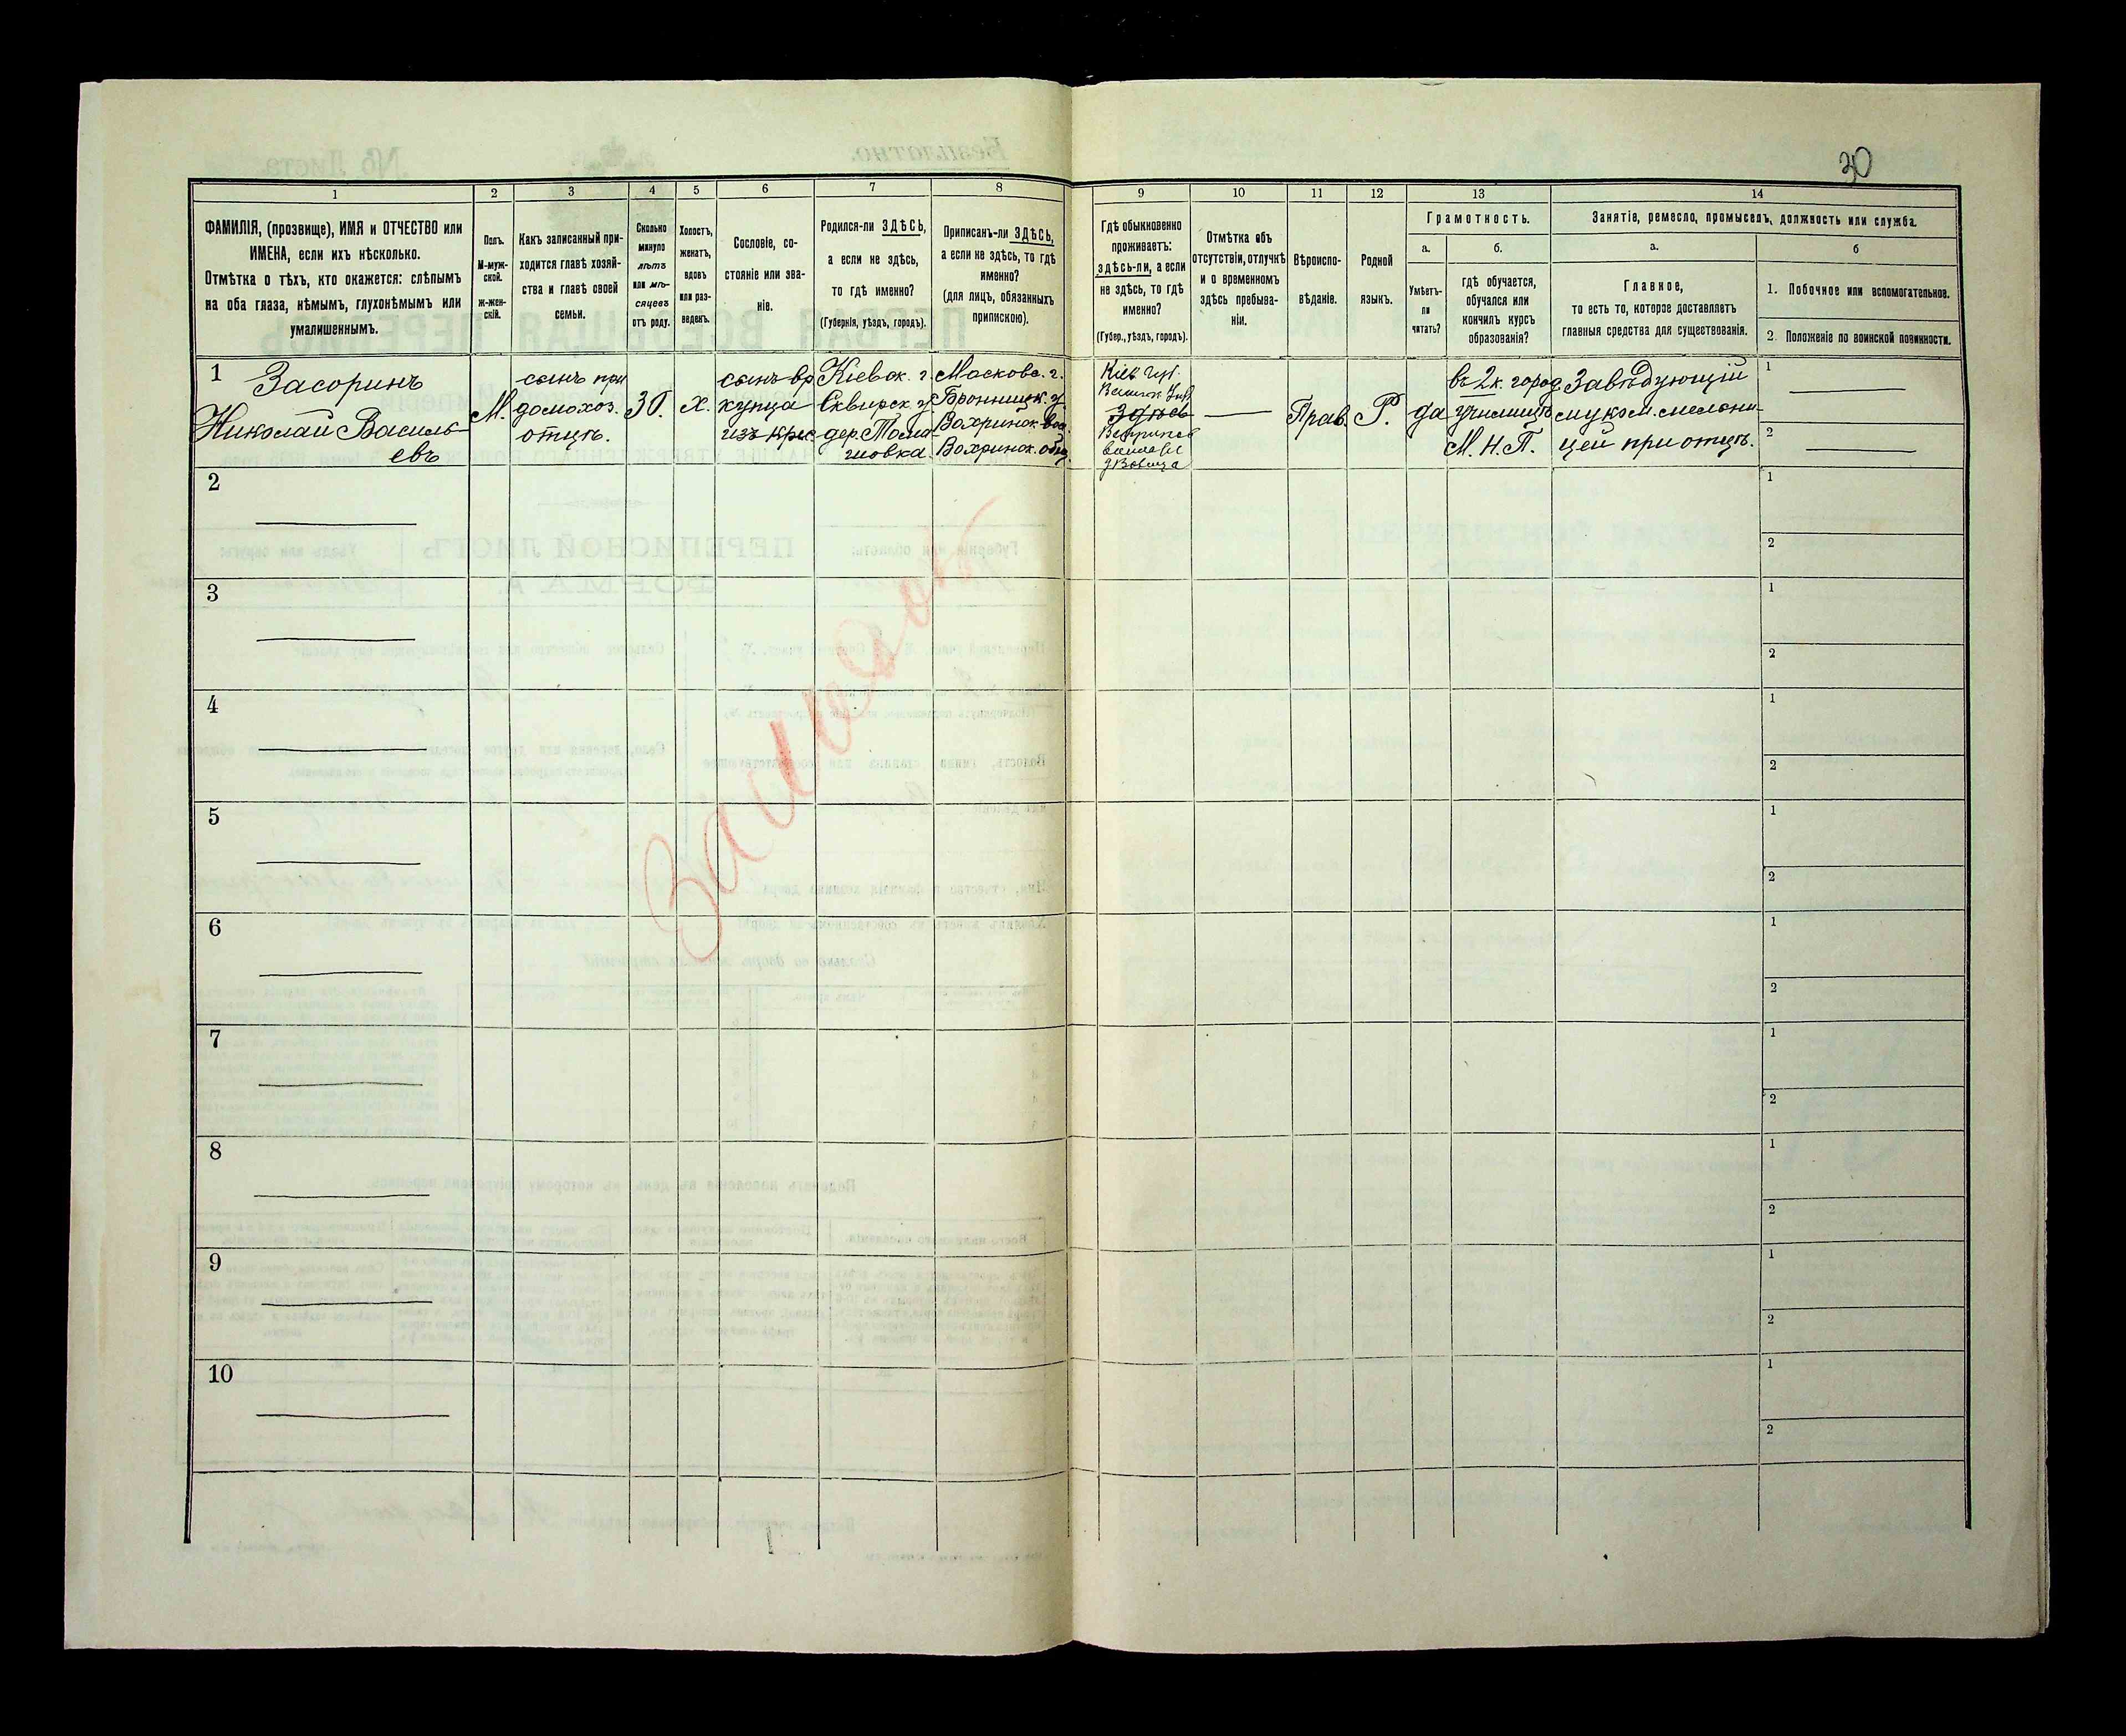 30
1
2
3
4
5
6
7
8
9
10
11
12
13
14
ФАМИЛІЯ, (прозвище), ИМЯ и ОТЧЕСТВО или
ИМЕНА, если ихъ нѣсколько.
Отмѣтка о тѣхъ, кто окажется: слѣпымъ
на оба глаза, нѣмымъ, глухонѣмымъ или
умалишеннымъ.
Полъ.
М-муж-
ской.
ж-жен-
скій.
Какъ записанный при-
ходится главѣ хозяй-
ства и главѣ своей
семьи.
Сколько
минуло
лѣтъ
или мѣ-
сяцевъ
отъ роду.
Холостъ,
женатъ,
вдовъ
или раз-
веденъ.
Сословіе, со-
стояніе или зва-
ніе.
Родился-ли ЗДѢСЬ,
а если не здѣсь,
то гдѣ именно?
(Губернія, уѣздъ, городъ).
Приписанъ-ли ЗДѢСЬ,
а если не здѣсь, то гдѣ
именно?
(для лицъ, обязанныхъ
припискою).
Гдѣ обыкновенно
проживаетъ:
здѣсь-ли, а если
не здѣсь, то гдѣ
именно?
(Губер., уѣздъ, городъ).
Отмѣтка объ
отсутствіи, отлучкѣ
и о временномъ
здѣсь пребыва-
ніи.
Вѣроиспо-
вѣданіе.
Родной
языкъ.
Грамотность.
а.
б.
Умѣетъ-
ли
читать?
гдѣ обучается,
обучался или
кончилъ курсъ
образованія?
Занятіе, ремесло, промыселъ, должность или служба.
а.
б
Главное,
то есть то, которое доставляетъ
главныя средства для существованія.
1. Побочное или вспомогательное.
2. Положеніе по воинской повинности.
1
Засоринъ
Николай Василь-
евъ
М.
сынъ при
домохоз.
отцѣ.
30.
Х.
сынъ вр
купца
изъ крес.
Кіевск. г.
Сквирск. у.
дер.
Московс. г.
Бронницк. у.
Вохринск. вол.
Вохринск. общ.
Кіев губ.
здѣсь
Прав.
Р.
да
въ 2 к. город.
училищѣ
М. Н. П.
Завѣдующій
муком. мельни-
цей при отцѣ.
1
2
2
1
2
3
1
2
4
1
2
5
1
2
6
1
2
7
1
2
8
1
2
9
1
2
10
1
2